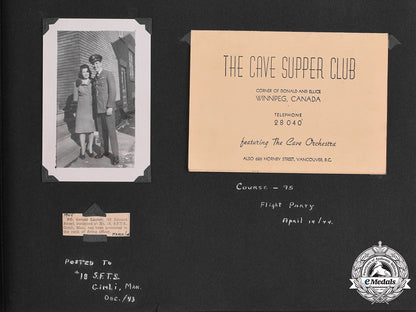 THE CAVE SUPPER CLUB
CORNER OF DONALD AND ELLICE
WINNIPEG, CANADA
TELEPHONE
28 040
featuring The Cave Orchestra
ALSO 626 HORNBY STREET, VANCOUVER, B.C.
COURSE - 95
Flight Party
April 14/44.
POSTED TO
#18 S.F.T.S.
GIMLI, MAN.
DEC./43
eMedals